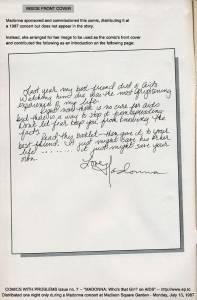 INSIDE FRONT COVER
Madonna sponsored and commissioned this comic, distributing it at
a 1987 concert but does not appear in the story.
Instead, she arranged for her image to be used as the comic's front cover
and contributed the following as an introduction on the following page:
Last year my best friend died of Aids
Watching him die was the most agonizing
experience of my life.
Right now there is no cure for aids
but there is a way to stop it from spreading
Don't let fear keep you from knowing the
facts.
Read this booklet - then give it to your
best friend. It just might save his or her
life ....... it just might save your
own.
Love,
Madonna
COMICS WITH PROBLEMS issue no. 7 -- "MADONNA: Who's that Girl? on AIDS" -- http://www.ep.tc
Distributed one night only during a Madonna concert at Madison Square Garden - Monday, July 13, 1987